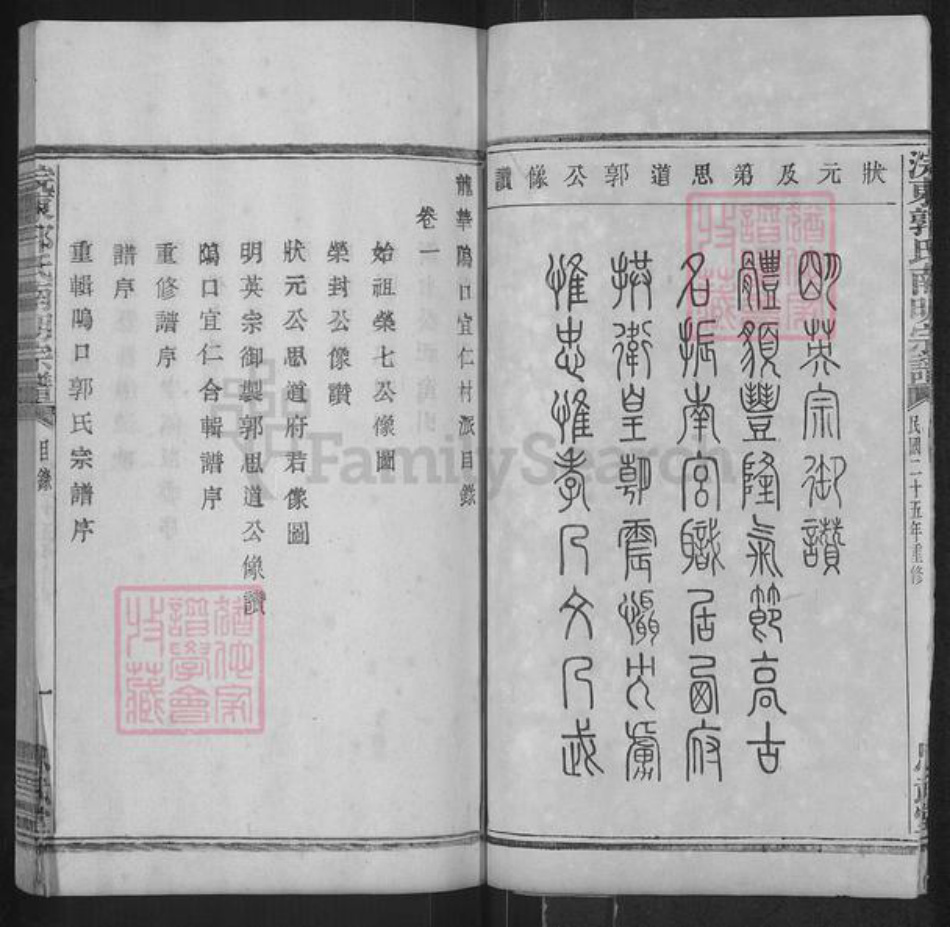 浣東郭氏南明宗譜
民國二十五年重修
狀元及第思道郭公像讚
明英宗御讚
體貌豐隆氣節高古
名振南宮職居
府
扶衛皇朝震懾
虜
惟忠惟孝乃文乃武
龍華隝口宜仁村派目錄
卷一
始祖榮七公像圖
榮封公像讚
狀元公思道府君像圖
明英宗御製郭思道公像讚
隝口宜仁合輯譜序
重修譜序
譜序
重輯隝口郭氏宗譜序
浣東郭氏南明宗譜
目錄
一
FamilySearch